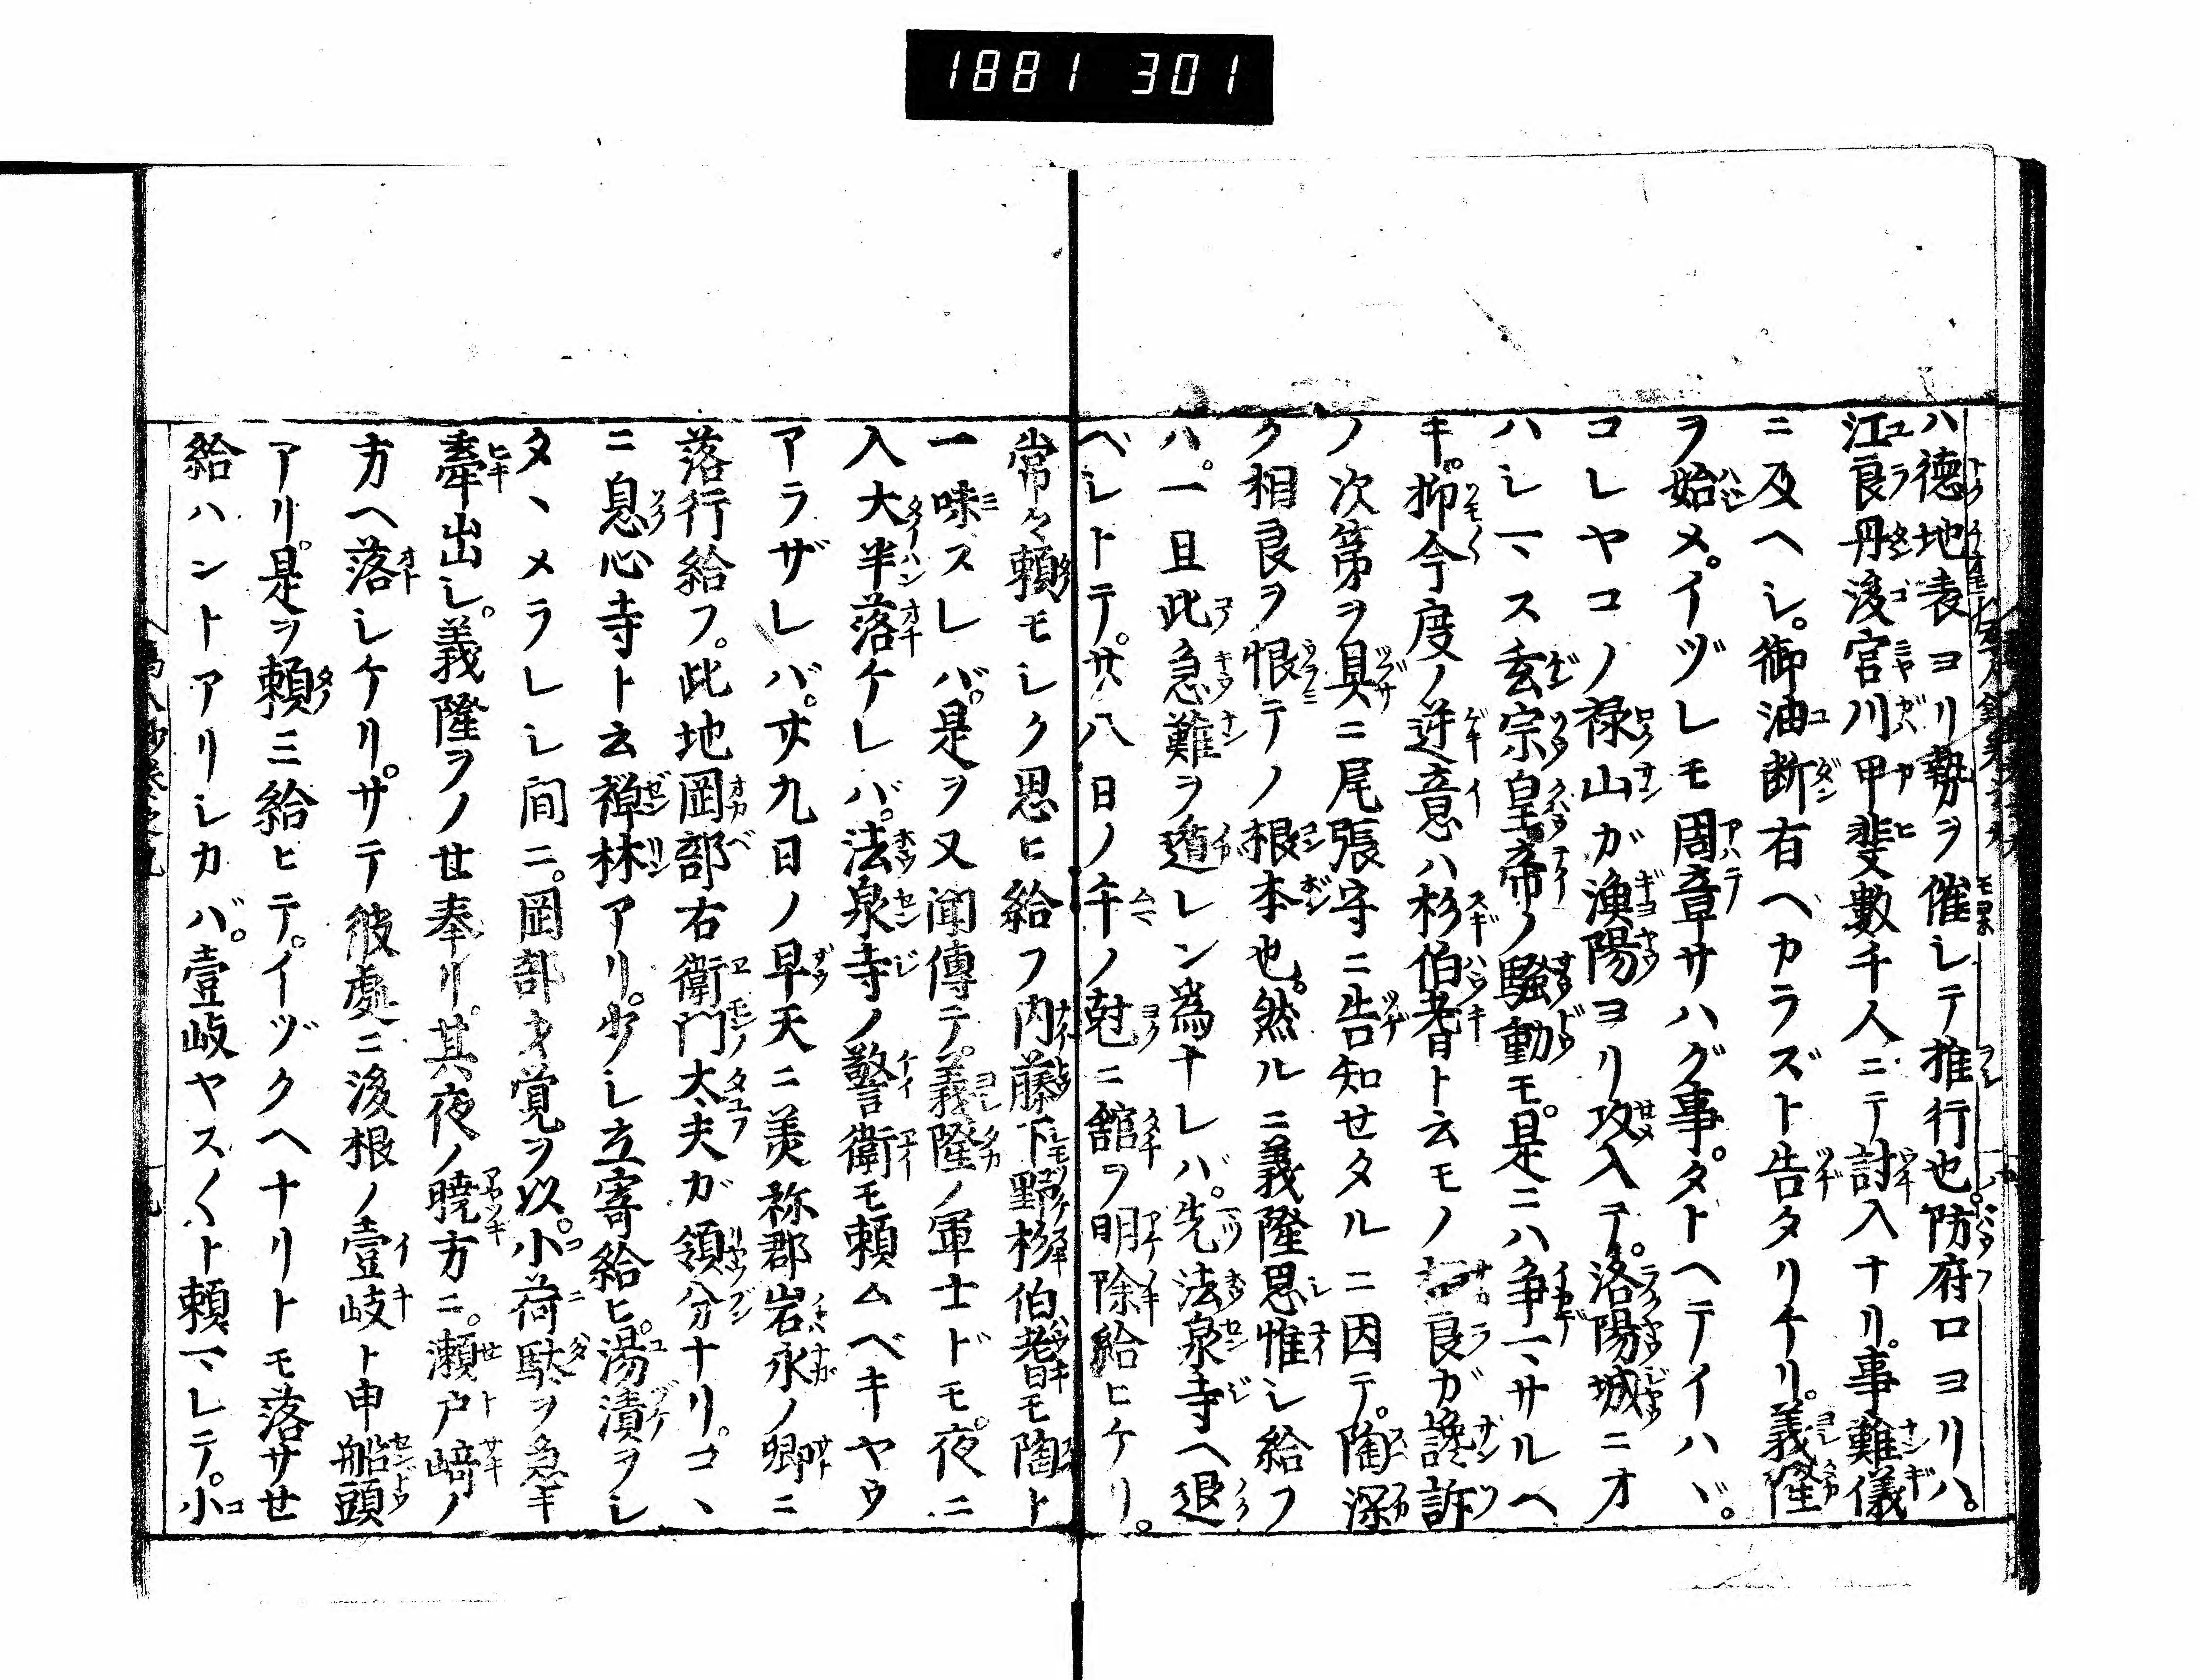 1881 301
ハ徳地表ヨリ勢ヲ催シテ推行也。防府口ヨリハ。
江良丹後宮川甲斐數千人ニテ討入ナリ。事難儀
ニ及ヘシ。御油断有ヘカラズト告タリケリ。義隆
ヲ始メ。イヅレモ周章サハグ事。タトヘテイハヾ。
コレヤコノ禄山が漁陽ヨリ攻入テ。洛陽城ニオ
ハシマス玄宗皇帝ノ騒動モ。是ニハ争マサルヘ
キ。抑今度ノ逆意ハ杉伯耆ト云モノ相良ガ讒訴
ノ次第ヲ具ニ尾張守ニ告知せタルニ因テ。陶深
ク相良ヲ恨テノ根本也。然ルニ義隆思惟シ給フ
ハ。一旦此急難ヲ遁レン爲ナレバ。先法泉寺ヘ退
ベシトテ。廿八日ノ午ノ尅ニ舘ヲ明除給ヒケリ。
常々頼モシク思ヒ給フ内藤下野杉伯耆モ陶ト
一味スレバ。是ヲ又聞傳テ。義隆ノ軍士ドモ。夜ニ
入大半落ケレバ。法泉寺ノ警衛モ頼ムベキヤウ
アラザレバ。廿九日ノ早天ニ美祢郡岩永ノ郷ニ
落行給フ。此地岡部右衛門太夫ガ領分ナリ。コヽ
ニ息心寺ト云禅林アリ。少シ立寄給ヒ。湯漬ヲシ
タヽメラレシ間ニ。岡部才覚ヲ以。小荷駄ヲ急キ
牽出シ。義隆ヲノせ奉リ。其夜ノ暁方ニ。瀬戸﨑ノ
方ヘ落シケリ。サテ彼處ニ後根ノ壹岐ト申船頭
アリ。是ヲ頼ミ給ヒテ。イヅクヘナリトモ落サせ
給ハントアリシカバ。壹岐ヤス〱ト頼マレテ。小